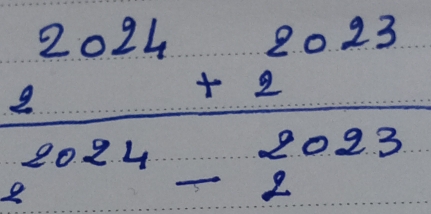 2²⁰²⁴ + 2²⁰²³
2²⁰²⁴ - 2²⁰²³